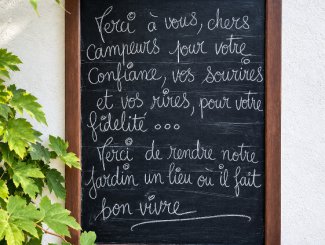 Merci à vous, chers
campeurs pour votre
confiance, vos sourires
et vos rires, pour votre
fidélité ...
Merci de rendre notre
jardin un lieu où il fait
bon vivre